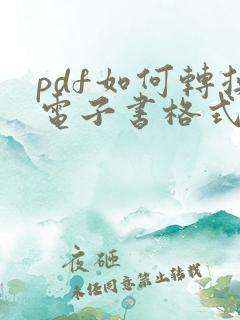 pdf如何轉換
電子書格式
夜砸
未任同意禁止转载